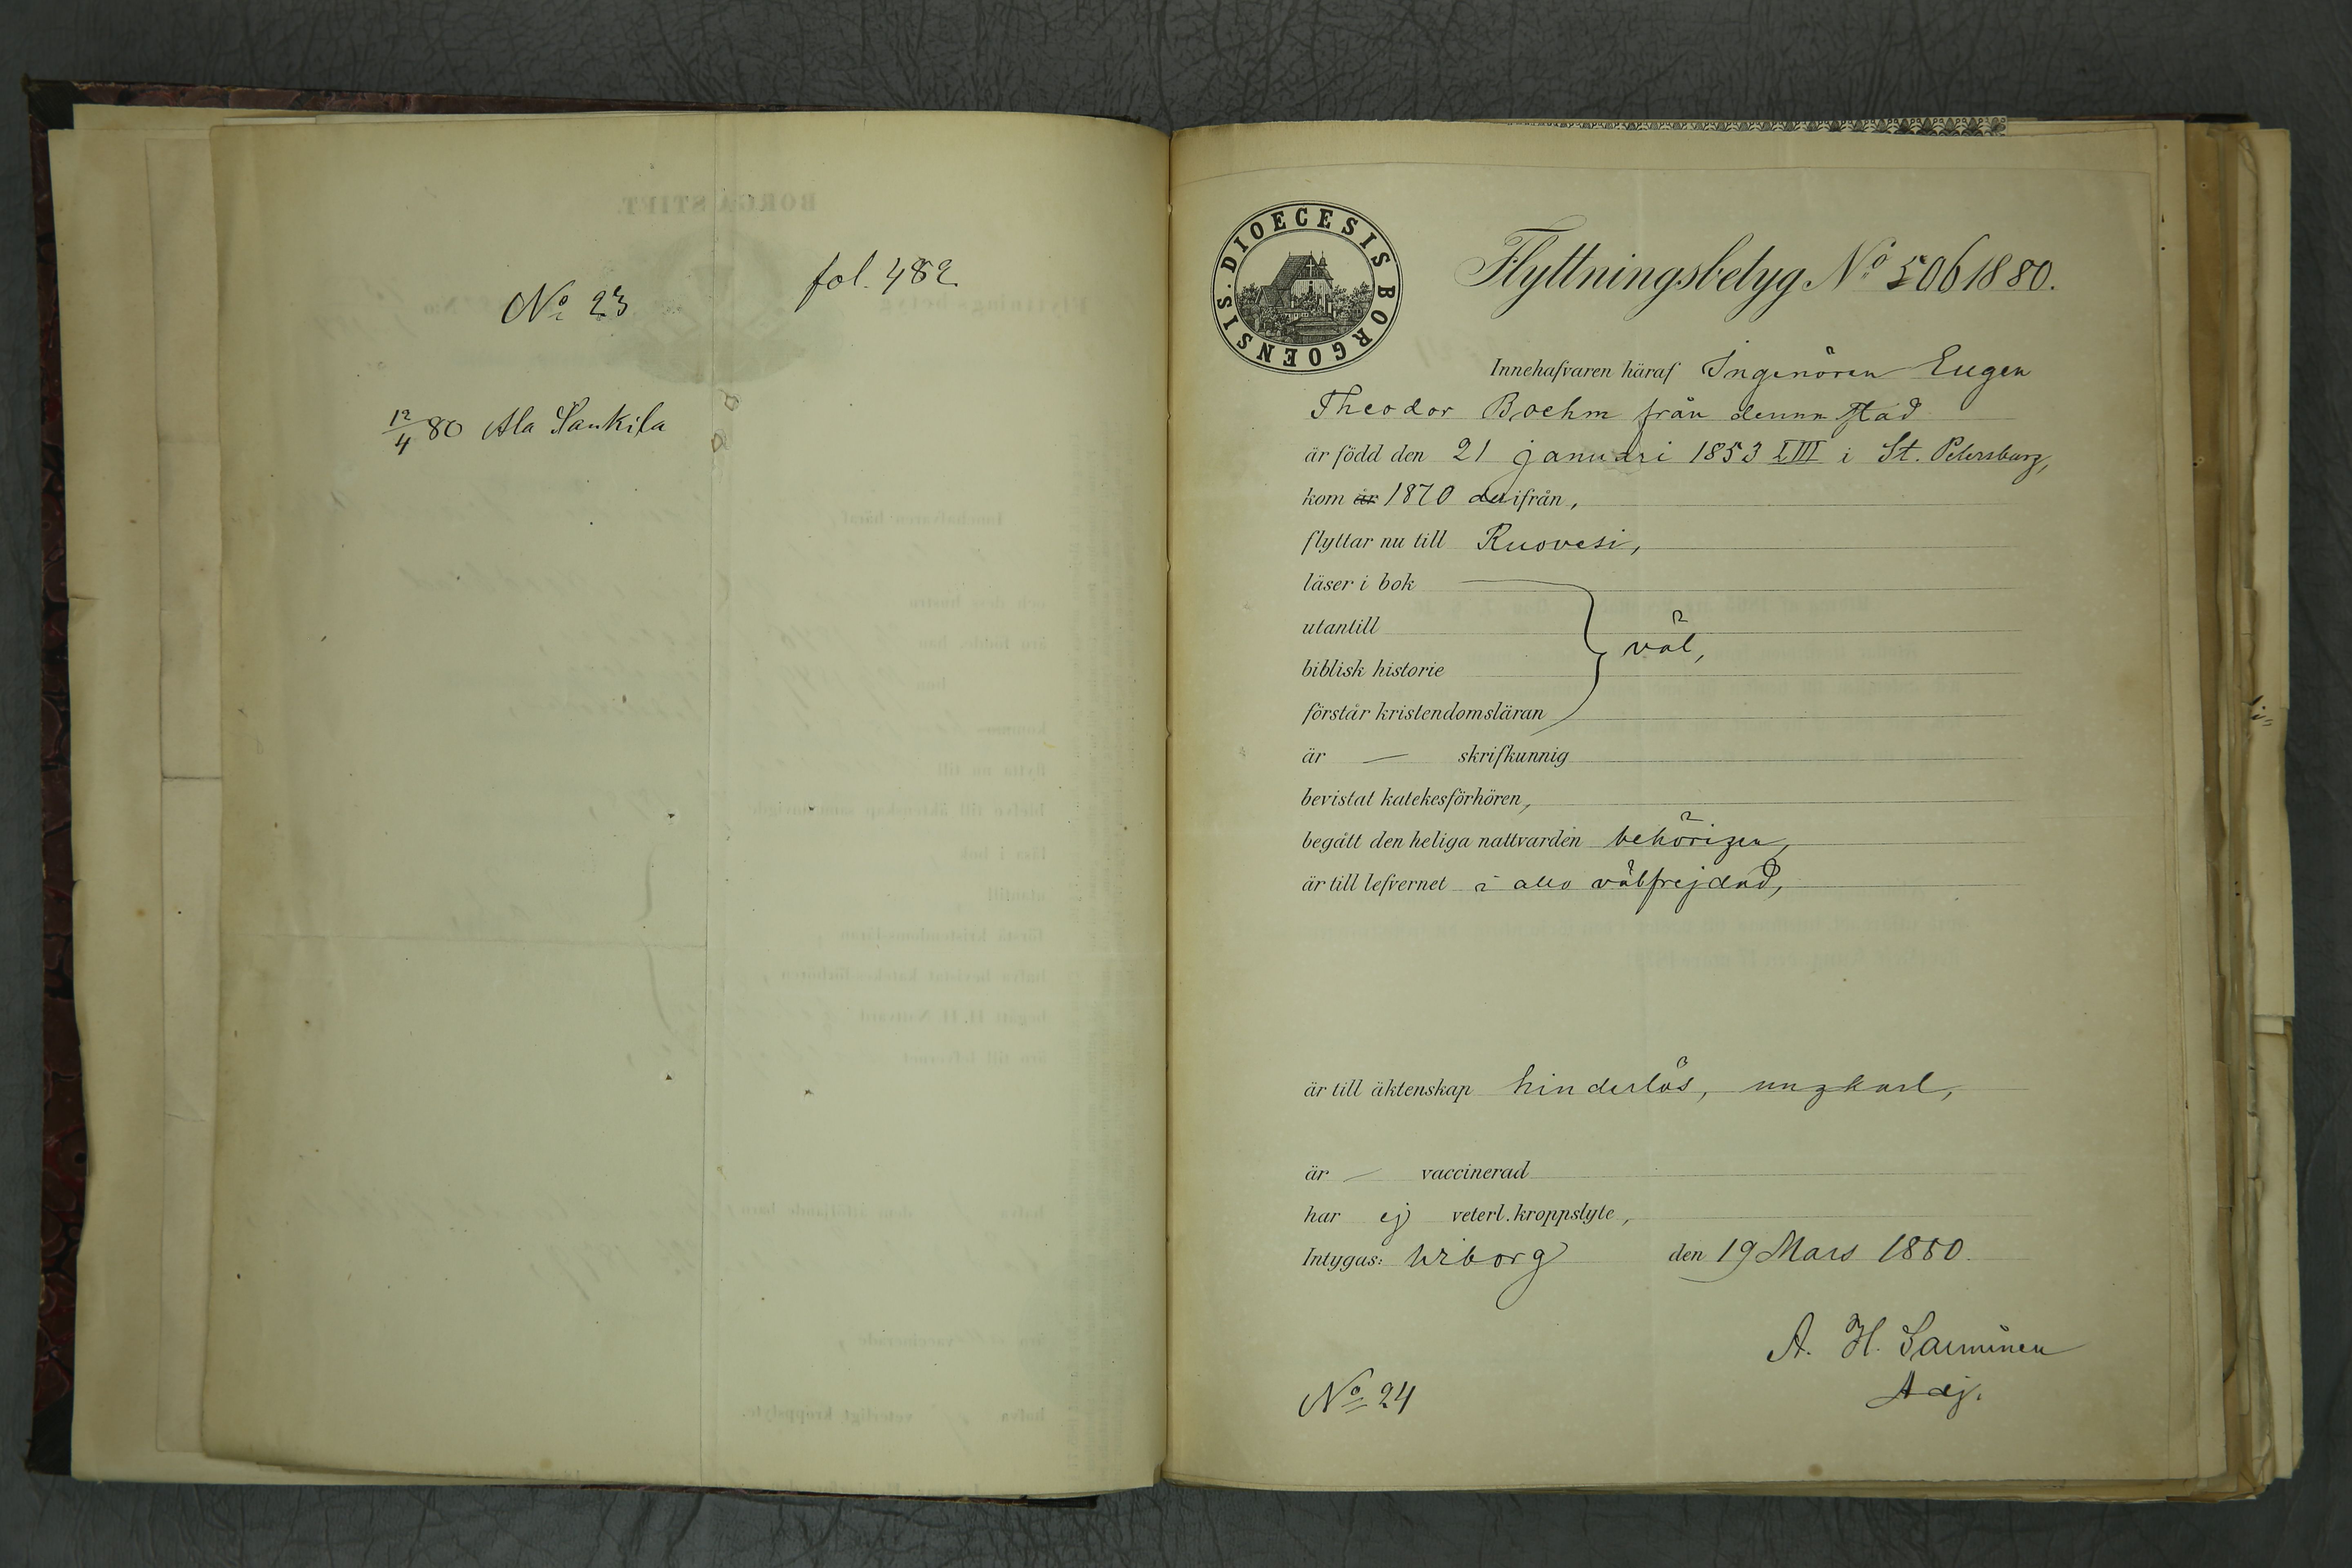 No 23
fol. 482
12/4 80 Ala Paukila
DIOECESIS BORGOENSIS.
Flyttningsbetyg No 506 1880.
Innehafvaren häraf Ingenören Eugen
Theodor Boehm från denna stad
är född den 21 januari 1853 LIII i St. Petersburg,
kom år 1870 derifrån,
flyttar nu till Ruovesi,
läser i bok
utantill
väl,
biblisk historie
förstår kristendomsläran
är — skrifkunnig
bevistat katekesförhören,
begått den heliga nattvarden behörigen,
är till lefvernet i allo välfrejdad,
är till äktenskap hinderlös, ungkarl,
är — vaccinerad
har ej veterl. kroppslyte,
Intygas: Wiborg den 19 Mars 1880.
A. H. Sarminen
Adj.
No 24